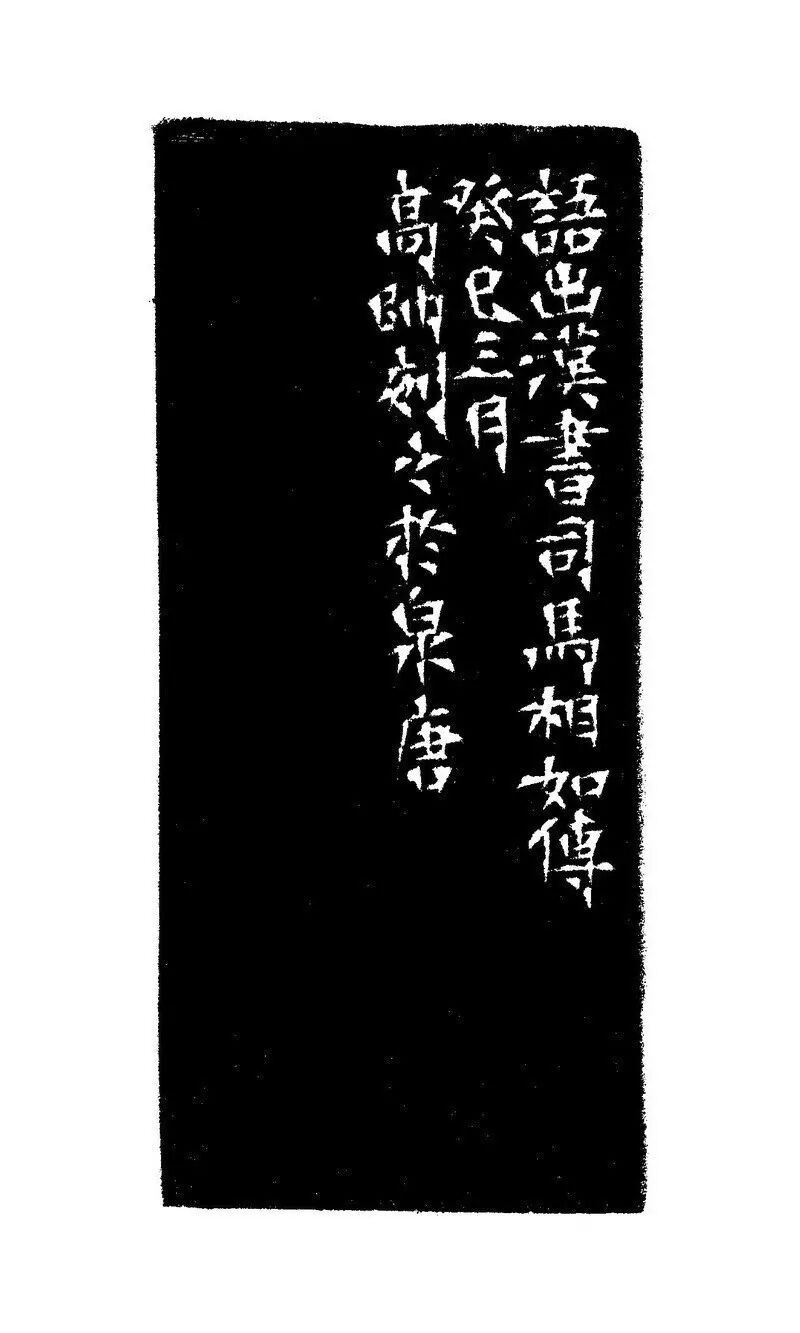 語出漢書司馬相如傳
癸巳三月
高帥刻之於泉唐